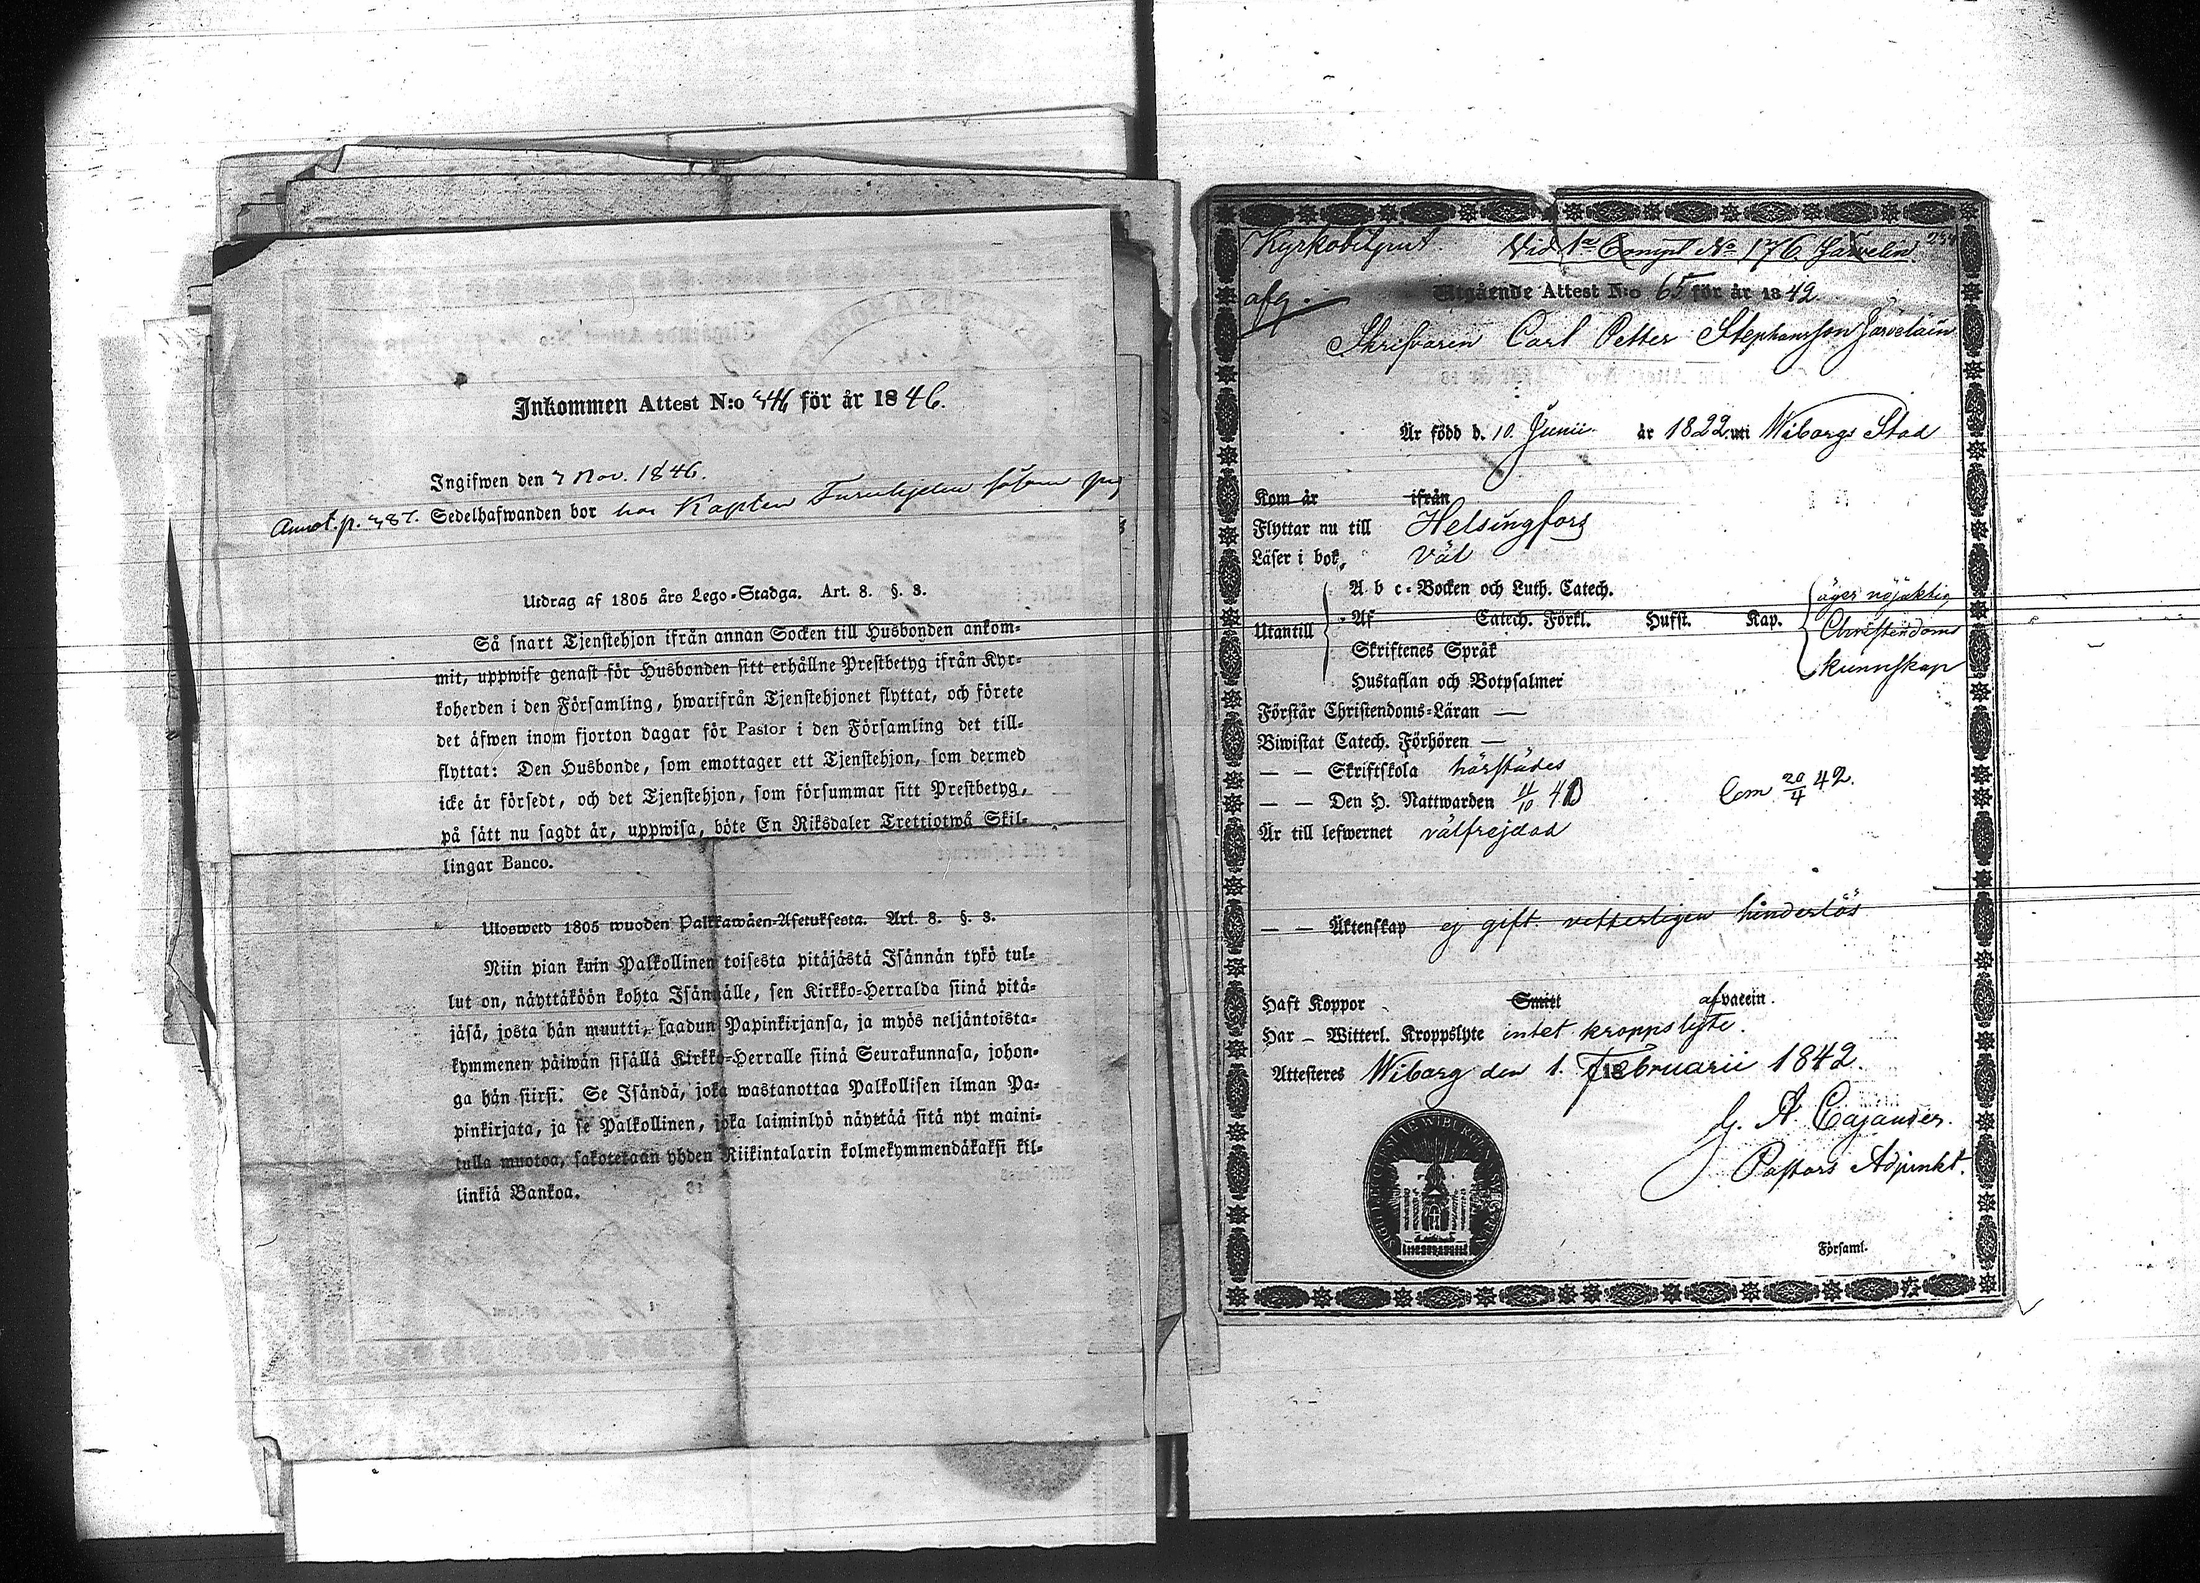 Inkommen Attest N:o 346 för år 1846.
Ingifwen den 7 Nov. 1846.
Annot. p. 387. Sedelhafwanden bor hos Kapten Furuhjelm såsom
Utdrag af 1805 års Lego-Stadga. Art. 8. §. 3.
Så snart Tjenstehjon ifrån annan Socken till Husbonden ankom-
mit, uppwise genast för Husbonden sitt erhållne Prestbetyg ifrån Kyr-
koherden i den Församling, hwarifrån Tjenstehjonet flyttat, och förete
det äfwen inom fjorton dagar för Pastor i den Församling det till-
flyttat: Den Husbonde, som emottager ett Tjenstehjon, som dermed
icke är försedt, och det Tjenstehjon, som försummar sitt Prestbetyg,
på sätt nu sagdt är, uppwisa, böte En Riksdaler Trettiotwå Skil-
lingar Banco.
Uloswetd 1805 wuoden Palkkawäen-Asetuksesta. Art. 8. §. 3.
Niin pian kuin Palkollinen toisesta pitäjästä Isännän tykö tul-
lut on, näyttäköön kohta Isännälle, sen Kirkko-Herralda siinä pitä-
jäsä, josta hän muutti, saadun Papinkirjansa, ja myös neljäntoista-
kymmenen päiwän sisällä Kirkko-Herralle siinä Seurakunnasa, johon-
ga hän siirsi. Se Isändä, joka wastanottaa Palkollisen ilman Pa-
pinkirjata, ja se Palkollinen, joka laiminlyö näyttää sitä nyt maini-
tulla muotoa, sakotekaan yhden Riikintalarin kolmekymmendäkaksi kil-
linkiä Bankoa.
Vid 1a Compl No 176. Järvelin.
afg.
Utgående Attest N:o 65 för år 1842.
Skrifvaren Carl Petter Stephansson Järveläin
Är född d. 10. Junii. år 1822. uti Wiborgs Stad
Kom år ifrån
Flyttar nu till Helsingfors
Läser i bok, väl
A b c-Bocken och Luth. Catech.
Utantill Af Catech. Förkl. Husst. Kap.
Skriftenes Språk
Hustaflan och Botpsalmer
äger nöjaktig
Christendoms
kunnskap
Förstår Christendoms-Läran —
Biwistat Catech. Förhören —
— — Skriftskola härstädes
— — Den H. Nattwarden 11/10 40 Com 20/4 42.
Är till lefwernet välfrejdad
— — Äktenskap ej gift. vetterligen hinderlös
Haft Koppor Smitt afvaccin.
Har — Witterl. Kroppslyte intet kroppslyte.
Attesteres Wiborg den 1. Februarii 1842.
G. A. Cajander.
Pastors Adjunkt.
Församl.